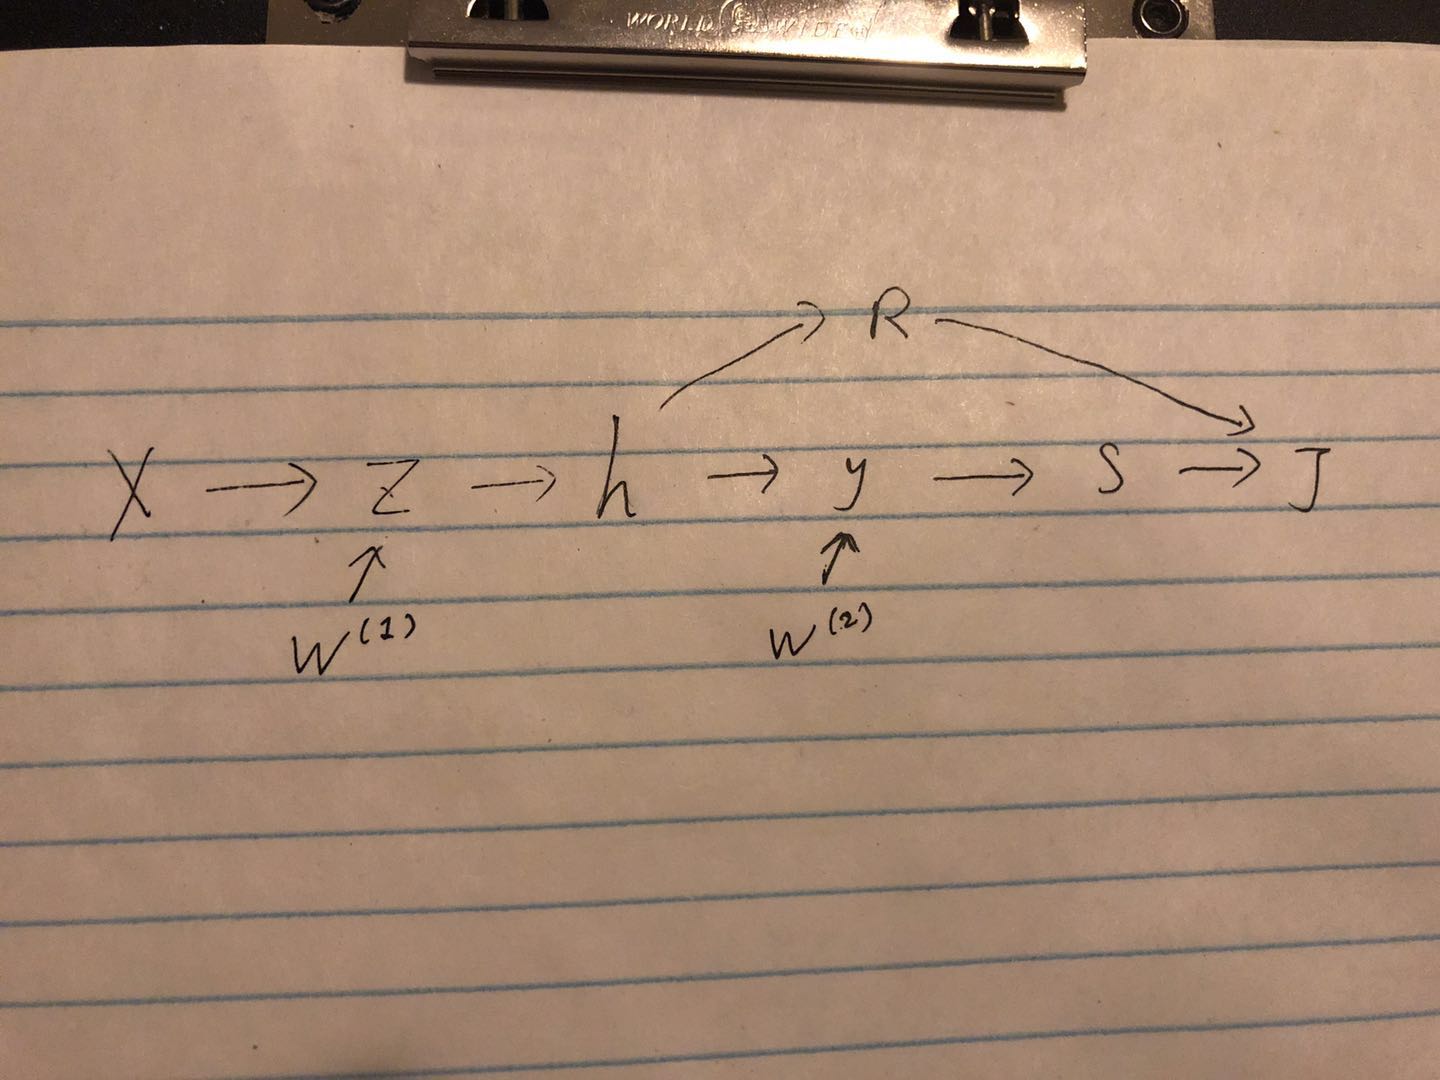 WORLD WIDE
R
X → Z → h → y → S → J
W(1) W(2)